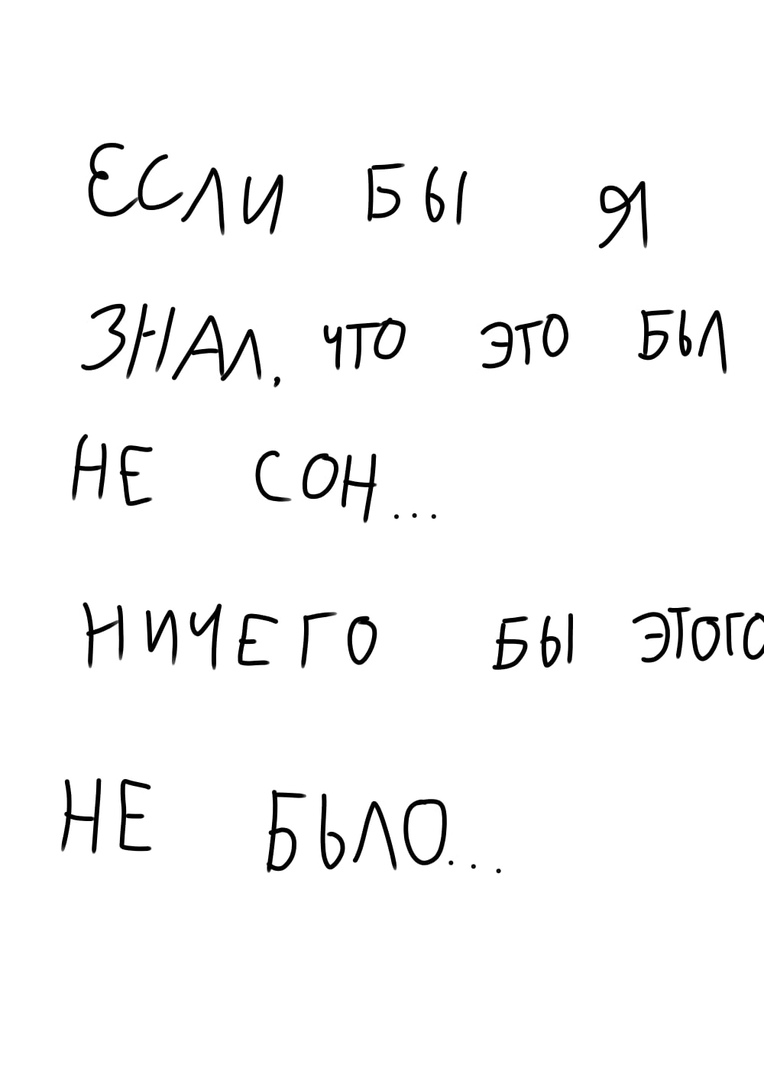 ЕСЛИ БЫ Я
ЗНАЛ, ЧТО ЭТО БЫЛ
НЕ СОН...
НИЧЕГО БЫ ЭТОГО
НЕ БЫЛО...